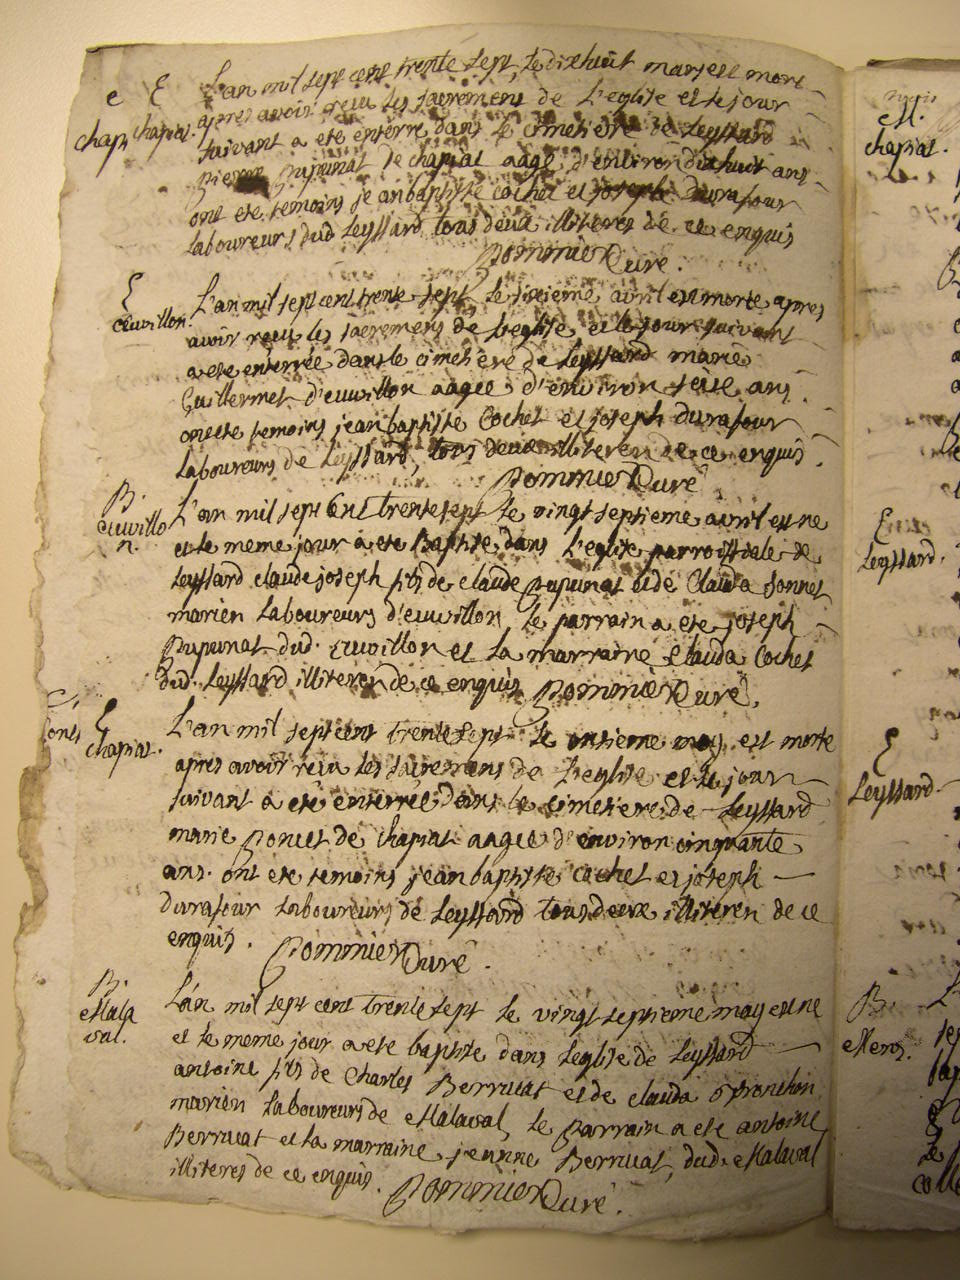 E
chapiat.
L'an mil sept cent trente sept, le dixhuit mars est mort
apres avoir reçu les sacremens de L'eglise et le jour
suivant a ete enterre dans le cimetiere de Leyssard
pierre pupunat de chapiat aagé d'environ dixhuit ans
ont ete temoins jean baptiste cochet et joseph durafour
laboureurs dud Leyssard tous deux illiteres de ce enquis
Pommier Curé.
E
cuvillon.
L'an mil sept cent trente sept le sixieme avril est morte apres
avoir reçu les sacremens de Leglise et le jour suivant
a ete enterrée dans le cimetiere de Leyssard marie
Guillermet d'euvillon aagée d'environ seize ans.
ont ete temoins jean baptiste Cochet et joseph durafour
laboureurs de Leyssard, tous deux illiteren de ce enquis.
Pommier Curé
B.
euvillo
n.
L'an mil sept Cent trente sept le vingt septieme avril est ne
et le meme jour a ete Baptise dans L'eglise parroissiale de
Leyssard claude joseph fils de claude pupunat et de Clauda Bonnet
marien Laboureurs d'euvillon, le parrain a ete joseph
Pupunat dud. Euvillon et La marraine Clauda Cochet
dud. Leyssard illiteren de ce enquis Pommier Curé.
E
chapiat.
L'an mil sept cent trente sept le onsieme may est morte
apres avoir reçu les sacremens de L'eglise et le jour
suivant a eté enterrée dans le cimetiere de Leyssard
marie Poncet de chapiat aagee d'environ cinquante
ans. ont ete temoins jean baptiste cochet et joseph
durafour laboureurs de Leyssard tous deux illiteren de ce
enquis. Pommier Curé.
B.
Mala
val.
L'an mil sept cent trente sept le vingt septieme may est ne
et le meme jour a ete baptise dans Leglise de Leyssard
antoine fils de Charles Berruat et de clauda
marien Laboureurs de Malaval, le Parrain a ete antoine
Berruat et la marraine jeanne Berruat dud. Malaval
illiteres de ce enquis. Pommier Curé.
M.
chapiat.
E
Leyssard.
E
Leyssard.
B.